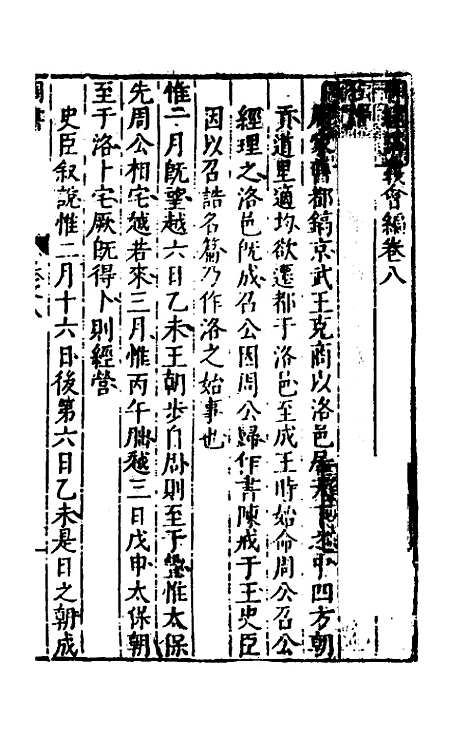 義會編卷八
召誥
舊都鎬京武王克商以洛邑居天下之中四方朝
貢道里適均欲遷都于洛邑至成王時始命周公召公
經理之洛邑既成召公因周公歸作書陳戒于王史臣
因以召誥名篇乃作洛之始事也
惟二月既望越六日乙未王朝步自周則至于豐惟太保
先周公相宅越若來三月惟丙午朏越三日戊申太保朝
至于洛卜宅厥既得卜則經營
史臣叙說惟二月十六日後第六日乙未是日之朝成